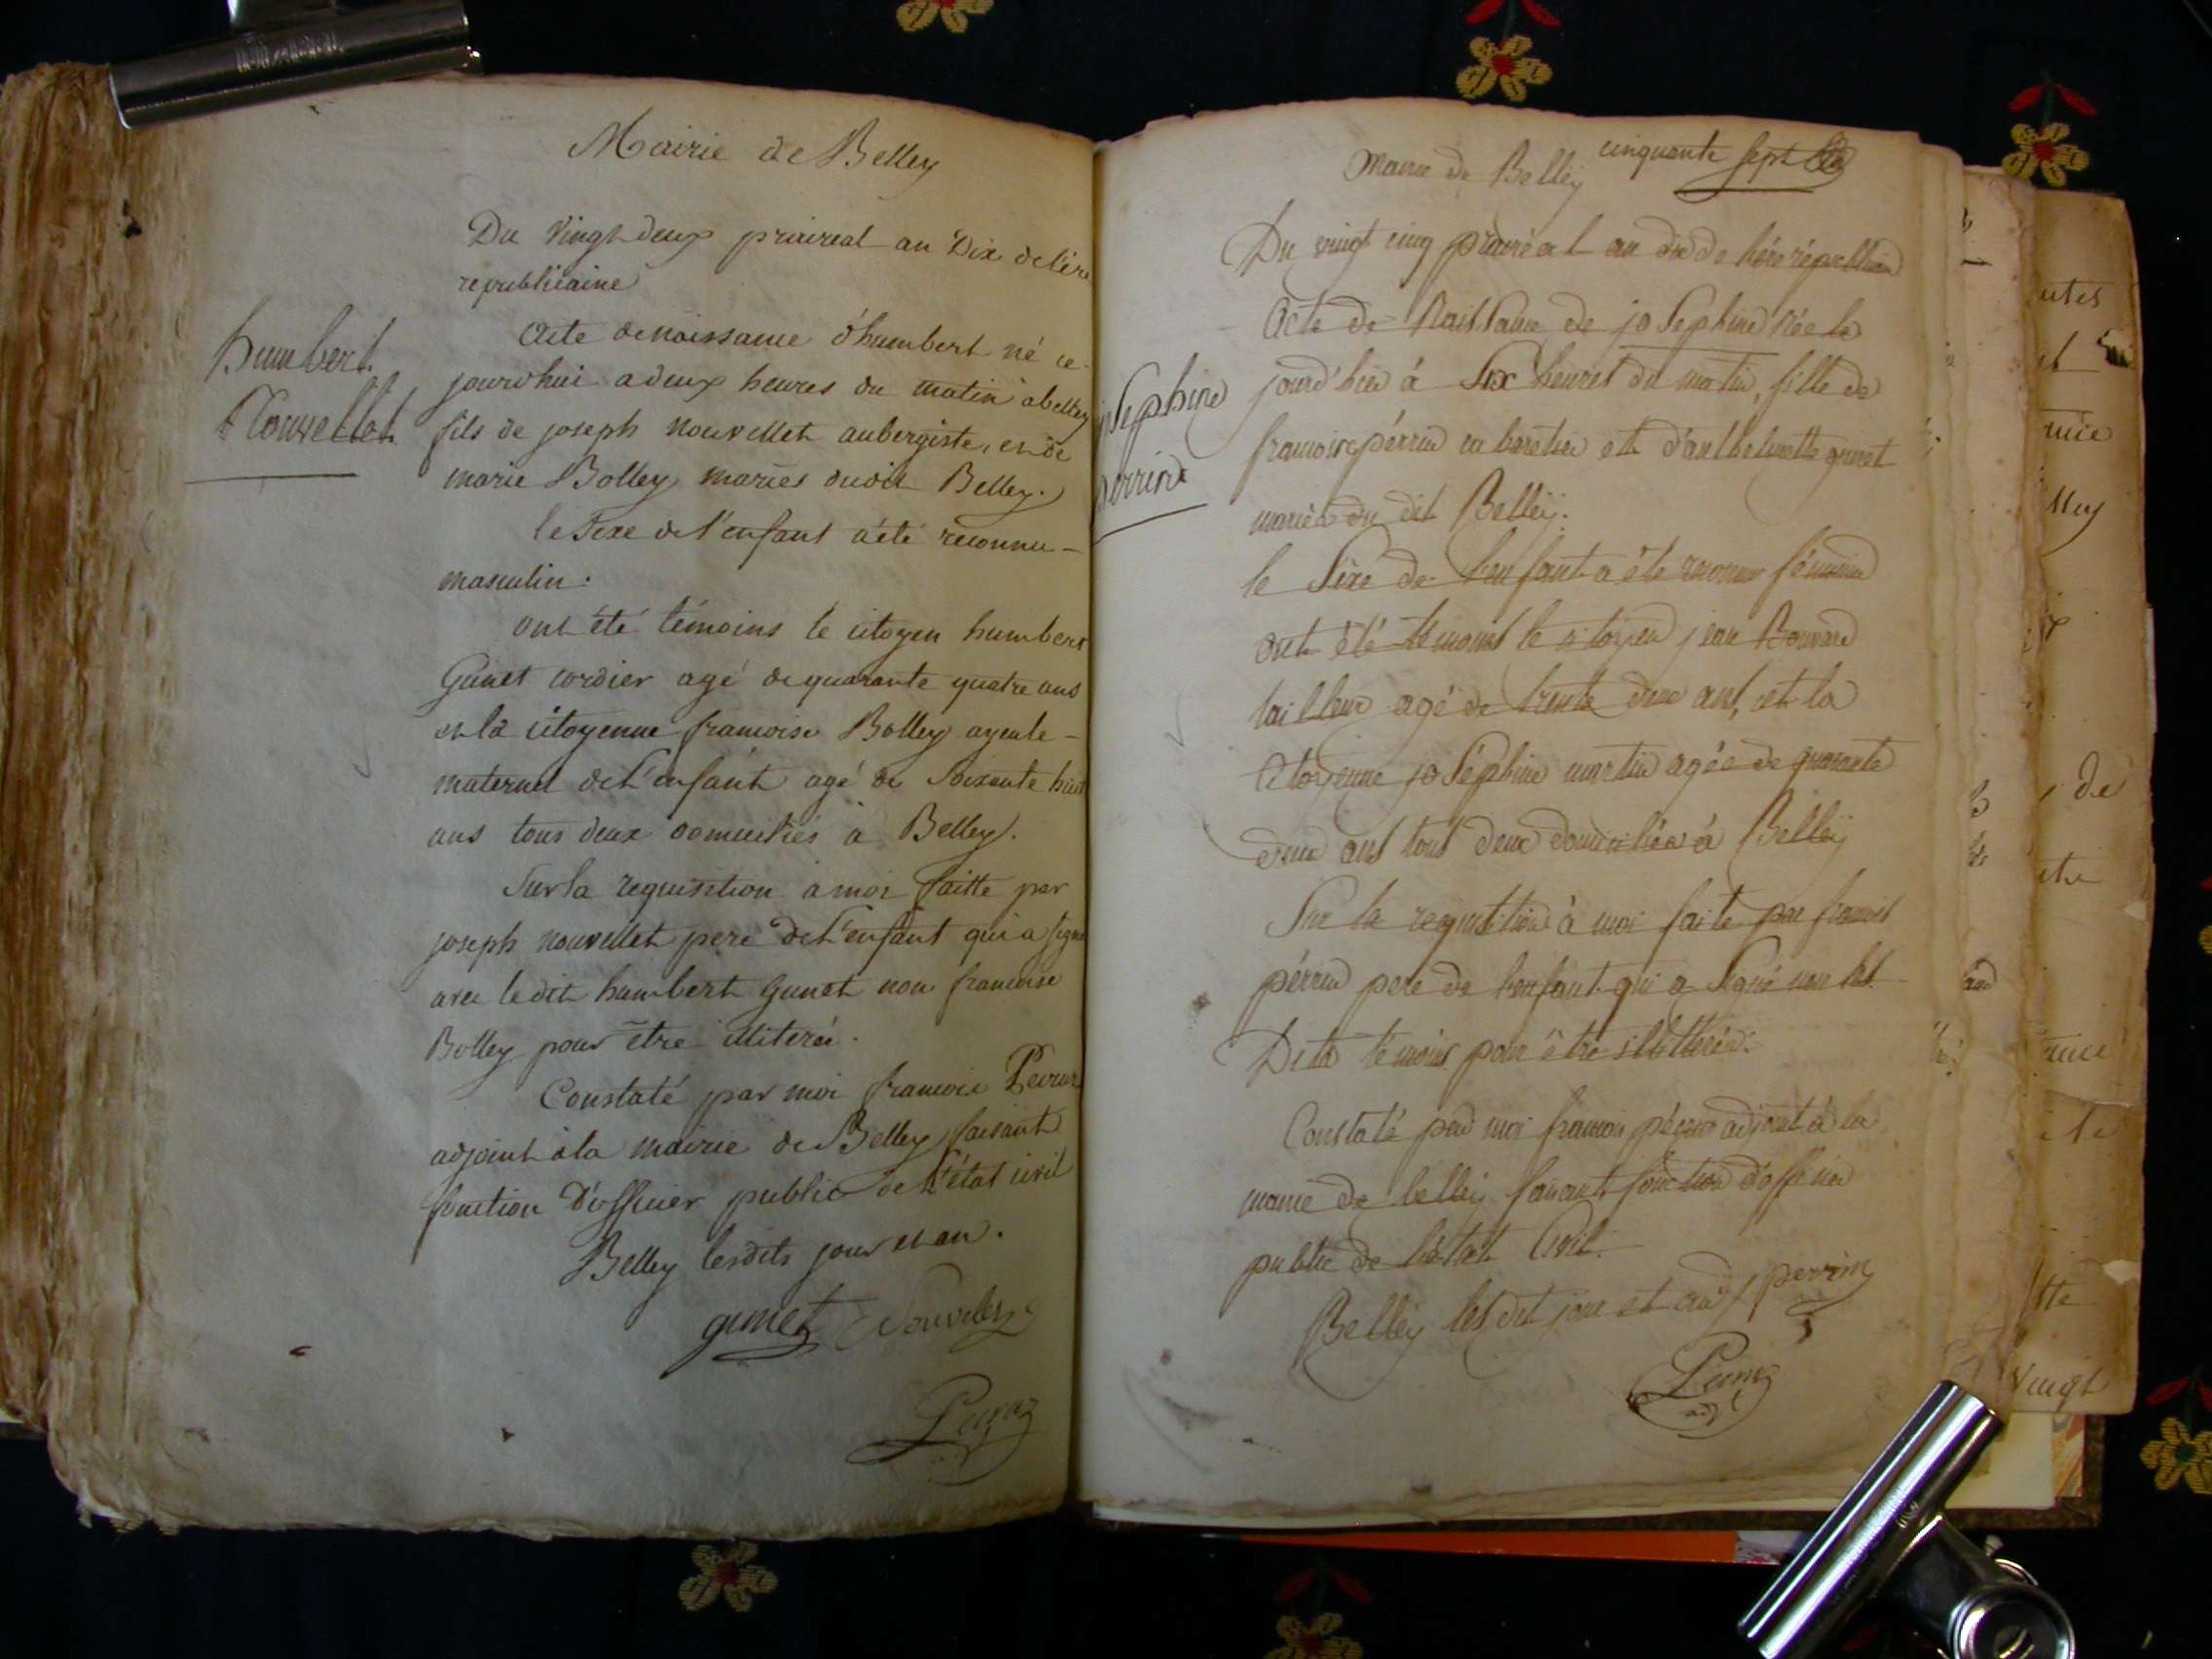 Mairie de Belley
Du vingt deux prairial an Dix de l'ère
republicaine
humbert
Nouvellet
Acte de naissance d'humbert né ce
jourd'hui a deux heures du matin à belley
fils de joseph nouvellet aubergiste, et de
marie Bolley mariés dudit Belley.
le sexe de l'enfant a été reconnu
masculin.
ont été témoins le citoyen humbert
Gunet cordier agé de quarante quatre ans
et la citoyenne francoise Bolley ayeule
maternel de l'enfant agé de soixante huit
ans tous deux domicitiés à Belley.
Sur la requisition a moi faitte par
joseph nouvellet pere de l'enfant qui a signé
avec ledit humbert Gunet non francoise
Bolley pour être illiterée.
Constaté par moi francois
adjoint à la mairie de Belley faisant
fonction D'officier public de l'état civil
Belley lesdits jour et an.
gunet Nouvelet
cinquante sept
Mairie de Belleÿ
Du vingt cinq prairéal an dix de l'ére républicaine
josephine
perrin
Acte de Naissance de josephine Née ce
jourd'hui à six heures du matin, fille de
francois pérrin cabaretier et d'anthelmette gunet
mariés du dit Belleÿ.
le sexe de l'enfant a été reconnu féminin
ont été témoins le citoyen jean Bouvard
tailleur agé de trente deux ans, et la
citoyenne joséphine martin agée de quarante
deux ans tous deux domiciliés à Belleÿ
Sur la requisition à moi faite par francois
pérrin pere de l'enfant qui a signé non les
Dits témoins pour être illittérés.
Constaté par moi francois adjoint à la
mairie de belleÿ faisant fonction d'officier
public de l'état Civil.
Belleÿ les dit jour et an perrin
adj